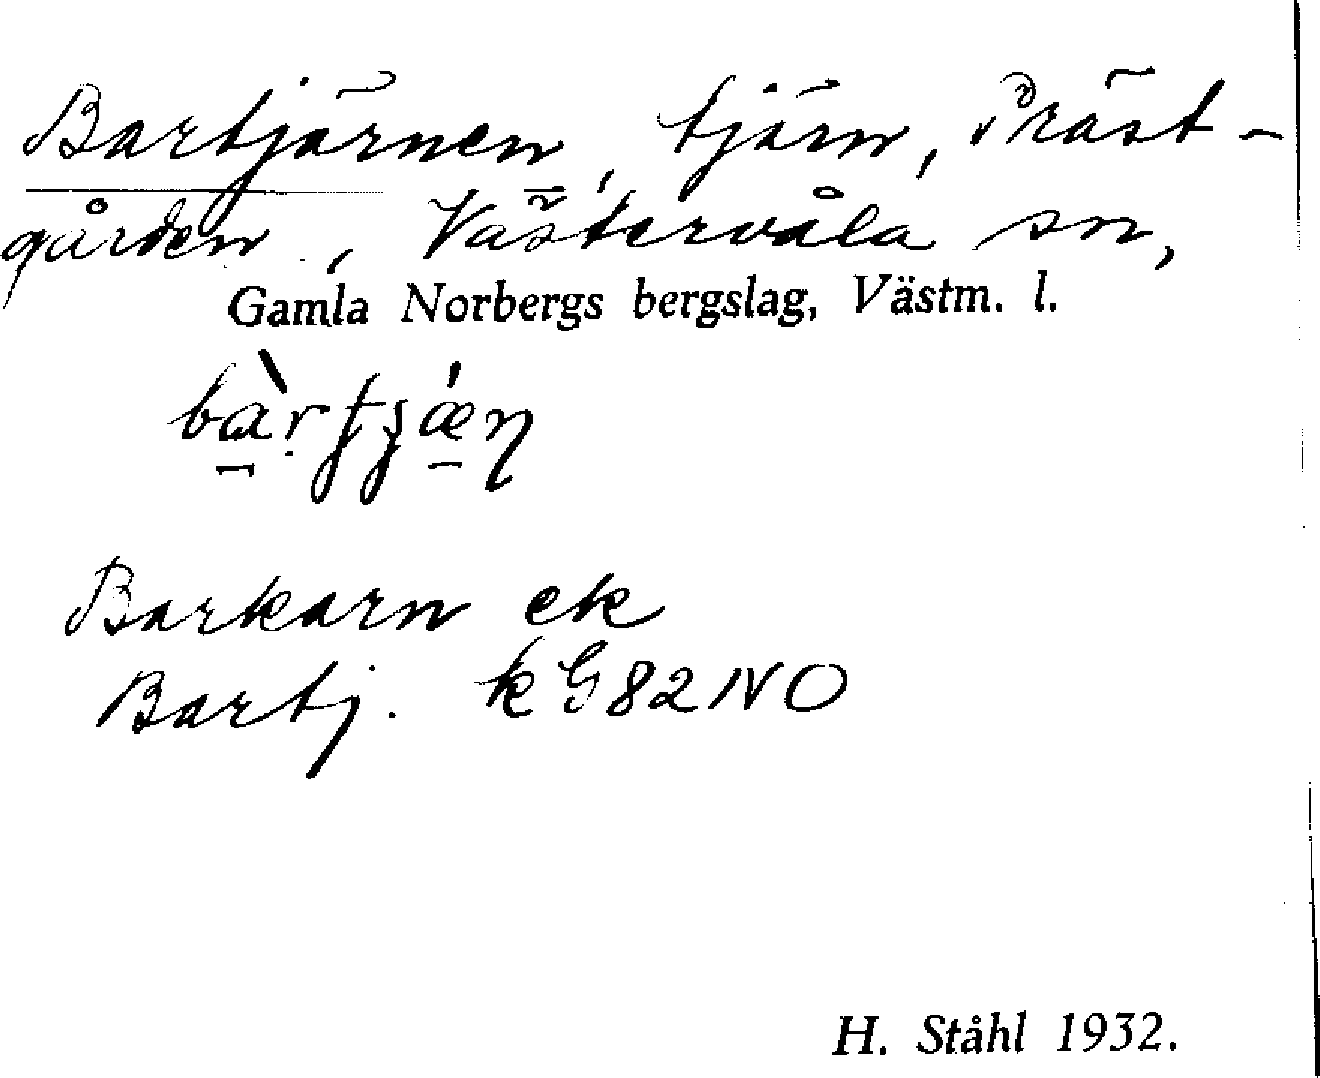 Bartjärnen, tjärn, Präst-
gården, Västervåla sn,
Gamla Norbergs bergslag, Västm. l.
Barkarn ek
Bartj. k G82NO
H. Ståhl 1932.